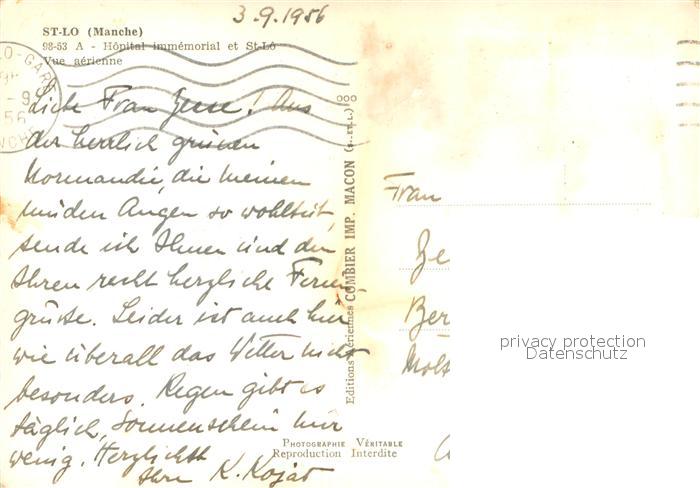 3.9.1956
ST-LO (Manche)
98-53 A - Hôpital immémorial et St-Lô
Vue aérienne
Liebe Frau ! Aus
der herrlich grünen
Normandie, die meinen
müden Augen so wohltut,
sende ich Ihnen und den
Ihren recht herzliche Fern-
grüsse. Leider ist auch hier
wie überall das Wetter nicht
besonders. Regen gibt es
täglich, Sonnenschein nur
wenig. Herzlichst
Ihre K.
Editions Aériennes COMBIER IMP. MACON (S.-ET-L.)
PHOTOGRAPHIE VÉRITABLE
Reproduction Interdite
Frau
Ge
Ber
privacy protection
Datenschutz